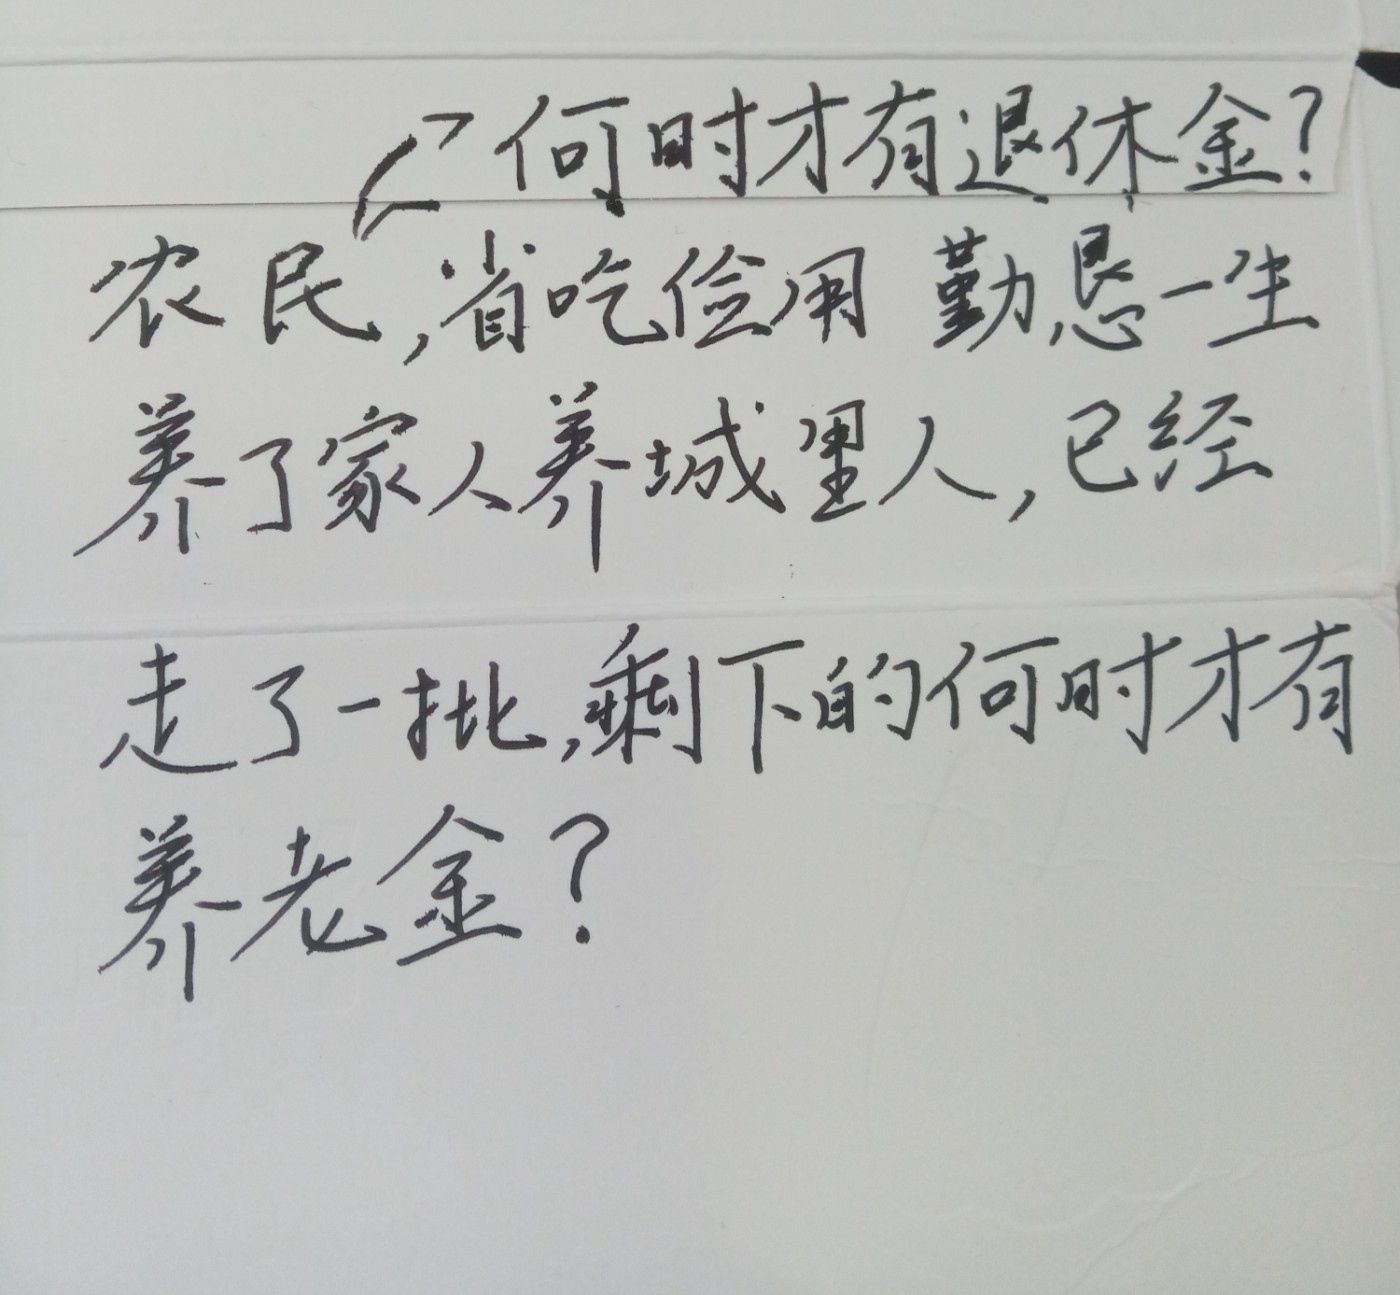 何时才有退休金?
农民,省吃俭用 勤恳一生
养了家人养城里人,已经
走了一批,剩下的何时才有
养老金?